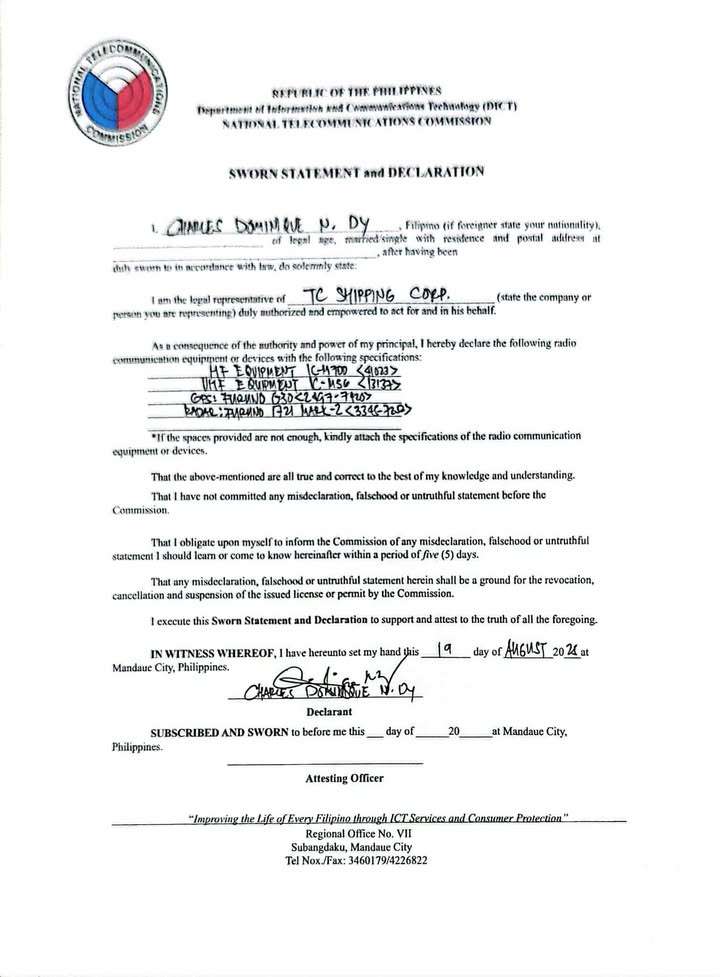 NATIONAL TELECOMMUNICATIONS COMMISSION
REPUBLIC OF THE PHILIPPINES
Department of Information and Communications Technology (DICT)
NATIONAL TELECOMMUNICATIONS COMMISSION
SWORN STATEMENT and DECLARATION
I, CHARLES DOMINIQUE N. DY, Filipino (if foreigner state your nationality),
of legal age, married/single with residence and postal address at
, after having been
duly sworn to in accordance with law, do solemnly state:
I am the legal representative of TC SHIPPING CORP. (state the company or
person you are representing) duly authorized and empowered to act for and in his behalf.
As a consequence of the authority and power of my principal, I hereby declare the following radio
communication equipment or devices with the following specifications:
HF EQUIPMENT IC-M700 <41023>
VHF EQUIPMENT IC-M56
GPS: FURUNO
RADAR: FURUNO 1721 MARK-2
*If the spaces provided are not enough, kindly attach the specifications of the radio communication
equipment or devices.
That the above-mentioned are all true and correct to the best of my knowledge and understanding.
That I have not committed any misdeclaration, falsehood or untruthful statement before the
Commission.
That I obligate upon myself to inform the Commission of any misdeclaration, falsehood or untruthful
statement I should learn or come to know hereinafter within a period of five (5) days.
That any misdeclaration, falsehood or untruthful statement herein shall be a ground for the revocation,
cancellation and suspension of the issued license or permit by the Commission.
I execute this Sworn Statement and Declaration to support and attest to the truth of all the foregoing.
IN WITNESS WHEREOF, I have hereunto set my hand this 19 day of AUGUST 20 at
Mandaue City, Philippines.
CHARLES DOMINIQUE N. DY
Declarant
SUBSCRIBED AND SWORN to before me this ___ day of ______20______at Mandaue City,
Philippines.
Attesting Officer
"Improving the Life of Every Filipino through ICT Services and Consumer Protection"
Regional Office No. VII
Subangdaku, Mandaue City
Tel Nox./Fax: 3460179/4226822